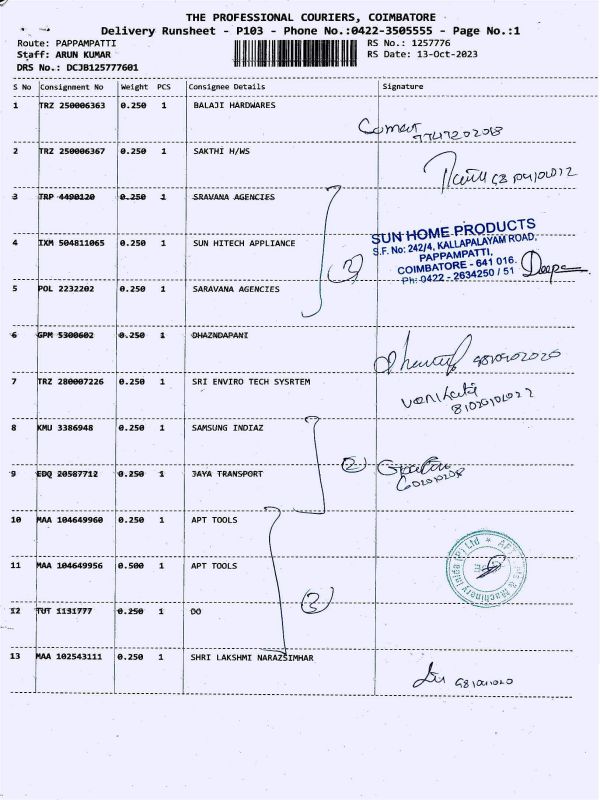 THE PROFESSIONAL COURIERS, COIMBATORE
Delivery Runsheet - P103 - Phone No.:0422-3505555 - Page No.:1
Route: PAPPAMPATTI RS No.: 1257776
Staff: ARUN KUMAR RS Date: 13-Oct-2023
DRS No.: DCJB125777601
S No Consignment No Weight PCS Consignee Details Signature
1 TRZ 250006363 0.250 1 BALAJI HARDWARES
2 TRZ 250006367 0.250 1 SAKTHI H/WS
3 TRP 4490120 0.250 1 SRAVANA AGENCIES
4 IXM 504811065 0.250 1 SUN HITECH APPLIANCE
SUN HOME PRODUCTS
S.F. No: 242/4, KALLAPALAYAM ROAD,
PAPPAMPATTI,
COIMBATORE - 641 016.
Ph: 0422 - 2634250 / 51
Deepa
5 POL 2232202 0.250 1 SARAVANA AGENCIES
6 GPM 5300602 0.250 1 DHAZNDAPANI
7 TRZ 280007226 0.250 1 SRI ENVIRO TECH SYSRTEM
8 KMU 3386948 0.250 1 SAMSUNG INDIAZ
9 EDQ 20587712 0.250 1 JAYA TRANSPORT
10 MAA 104649960 0.250 1 APT TOOLS
11 MAA 104649956 0.500 1 APT TOOLS
12 TUT 1131777 0.250 1 DO
13 MAA 102543111 0.250 1 SHRI LAKSHMI NARAZSIMHAR